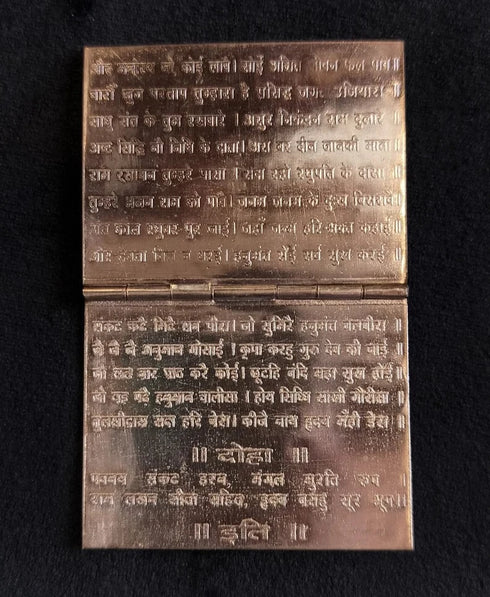 और मनोरथ जो कोई लावै। सोई अमित जीवन फल पावै॥
चारों जुग परताप तुम्हारा। है प्रसिद्ध जगत उजियारा॥
साधु संत के तुम रखवारे। असुर निकंदन राम दुलारे॥
अष्ट सिद्धि नौ निधि के दाता। अस वर दीन जानकी माता॥
राम रसायन तुम्हरे पासा। सदा रहो रघुपति के दासा॥
तुम्हरे भजन राम को पावै। जनम जनम के दुःख विसरावै॥
अंत काल रघुवर पुर जाई। जहाँ जन्म हरि भक्त कहाई॥
और देवता चित्त न धरई। हनुमंत सेई सर्व सुख करई॥
संकट कटै मिटै सब पीरा। जो सुमिरै हनुमंत बलबीरा॥
जै जै जै हनुमान गोसाईं। कृपा करहु गुरु देव की नाईं॥
जो शत बार पाठ करै कोई। छूटहि बंदि महा सुख होई॥
जो यह पढै हनुमान चालीसा। होय सिद्धि साखी गौरीसा॥
तुलसीदास सदा हरि चेरा। कीजै नाथ हृदय मँही डेरा॥
॥ दोहा ॥
पवनय संकट हरन, मंगल मुरति रूप
राम लखन सीता सहित, हृदय बसहु सूर भूप॥
॥ इति ॥